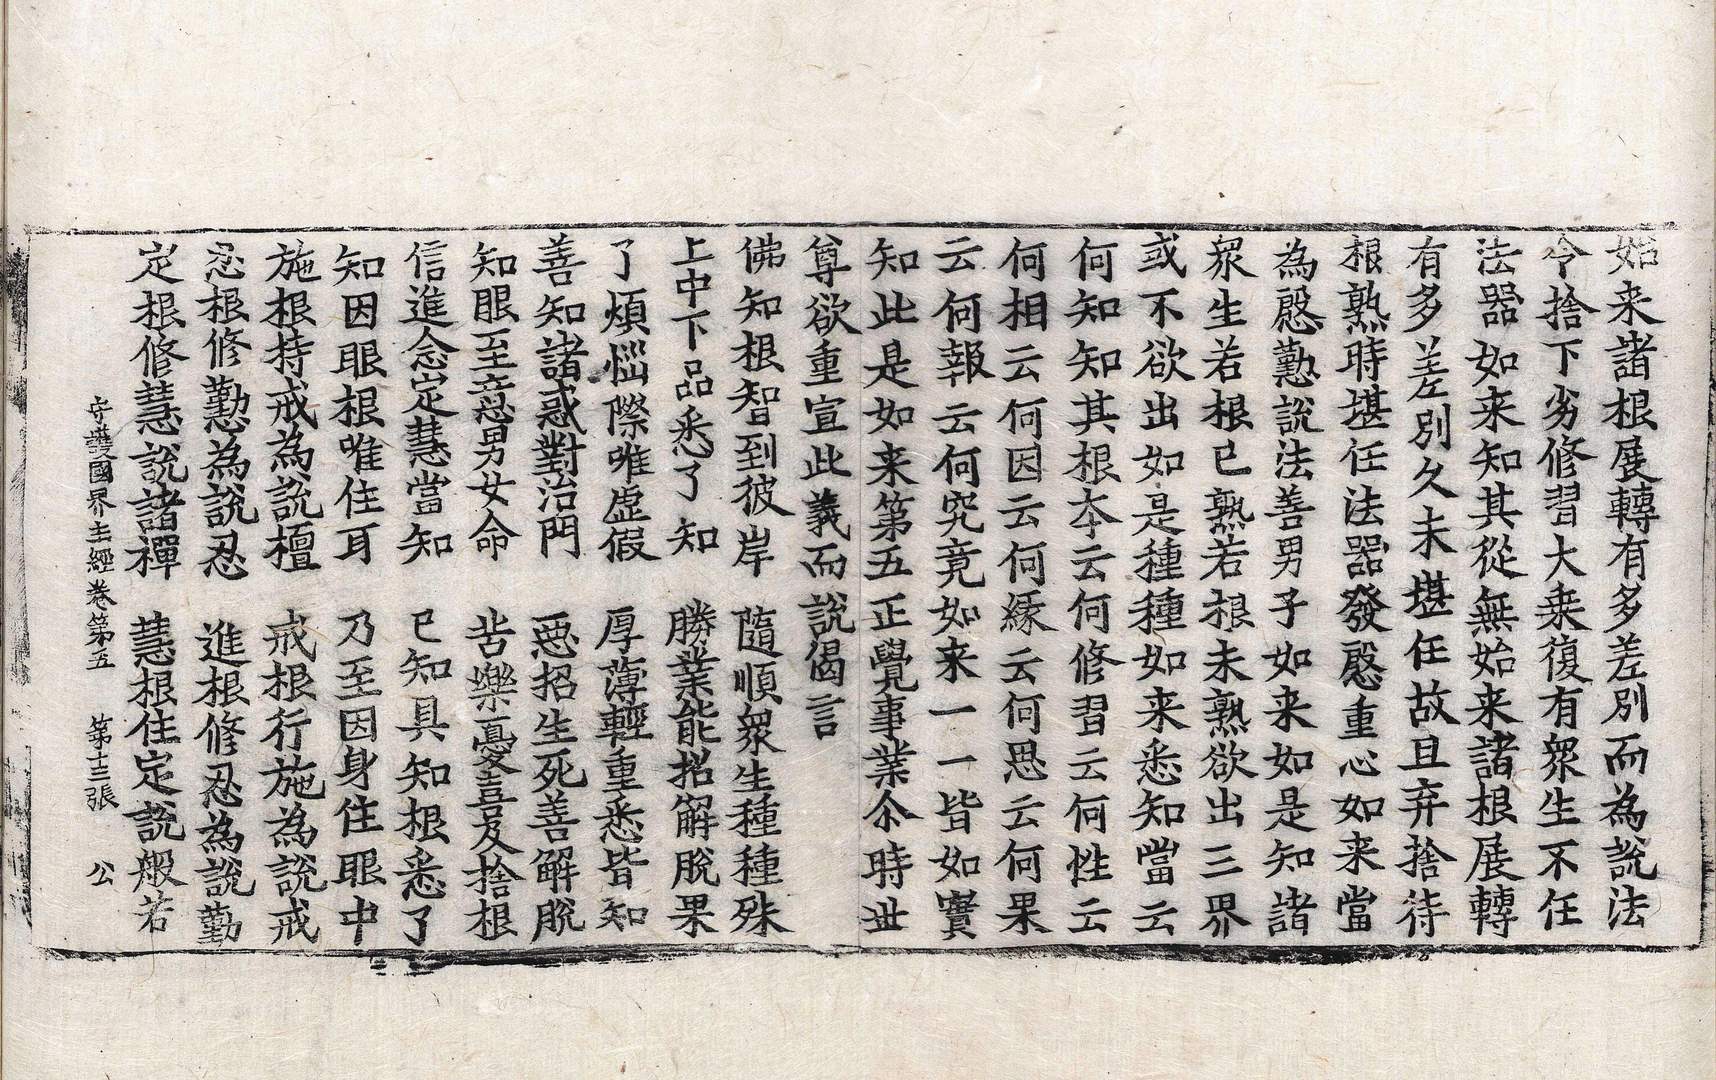 始来諸根展轉有多差別而為說法
令捨下劣修習大乗復有衆生不任
法器如来知其從無始来諸根展轉
有多差別久未堪任故且弃捨待
根熟時堪任法器發慇重心如来當
為慇懃說法善男子如来如是知諸
衆生若根已熟若根未熟欲出三界
或不欲出如是種種如来悉知當云
何知知其根本云何修習云何性云
何相云何因云何緣云何恩云何果
云何報云何究竟如来一一皆如實
知此是如来第五正覺事業尒時世
尊欲重宣此義而說偈言
佛知根智到彼岸　隨順衆生種種殊
上中下品悉了知　勝業能招解脫果
了煩惱際唯虛假　厚薄輕重悉皆知
善知諸惑對治門　惡招生死善解脫
知眼至意男女命　苦樂憂喜及捨根
信進念定慧當知　已知具知根悉了
知因眼根唯住耳　乃至因身住眼中
施根持戒為說檀　戒根行施為說戒
忍根修勤為說忍　進根修忍為說勤
定根修慧說諸禪　慧根住定說般若
守護國界主經卷第五　第十三張　公